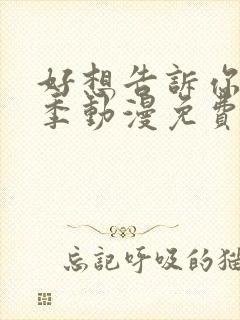 好想告訴你
季動漫免費
忘記呼吸的猫